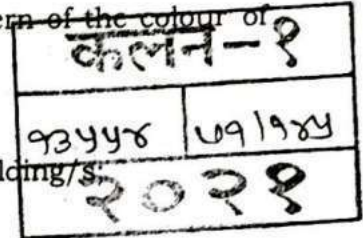 ern of the colour of
कलन-१
१३५५४ ७१/१४५
lding/s
२०२१